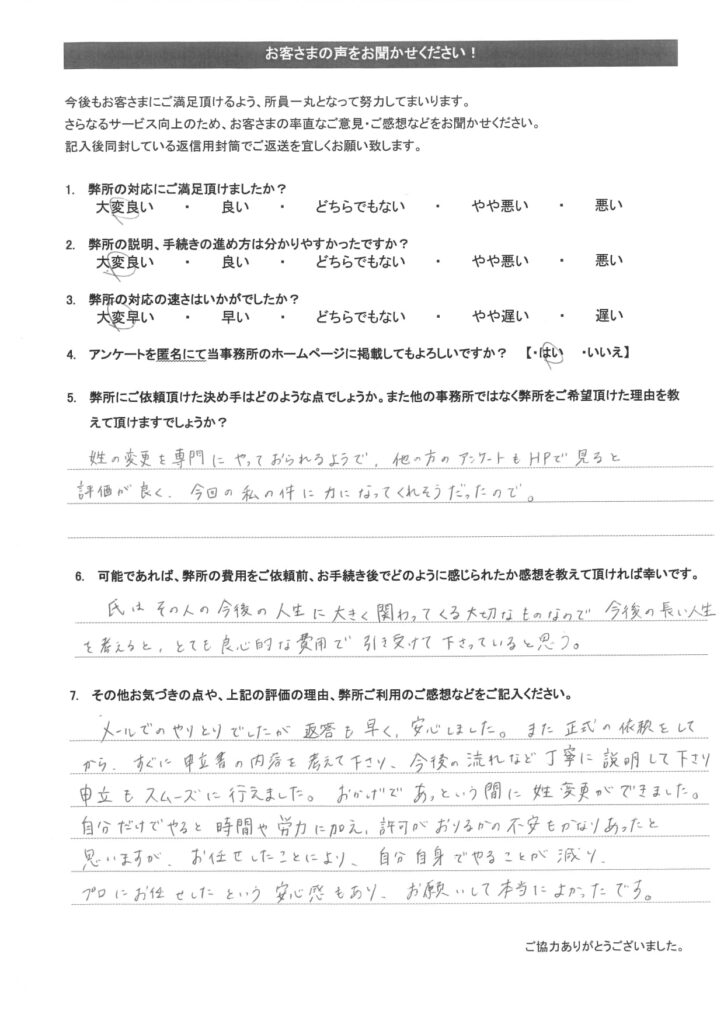 お客さまの声をお聞かせください！
今後もお客さまにご満足頂けるよう、所員一丸となって努力してまいります。
さらなるサービス向上のため、お客さまの率直なご意見・ご感想などをお聞かせください。
記入後同封している返信用封筒でご返送を宜しくお願い致します。
1. 弊所の対応にご満足頂けましたか？
大変良い ・ 良い ・ どちらでもない ・ やや悪い ・ 悪い
2. 弊所の説明、手続きの進め方は分かりやすかったですか？
大変良い ・ 良い ・ どちらでもない ・ やや悪い ・ 悪い
3. 弊所の対応の速さはいかがでしたか？
大変早い ・ 早い ・ どちらでもない ・ やや遅い ・ 遅い
4. アンケートを匿名にて当事務所のホームページに掲載してもよろしいですか？ 【・はい ・いいえ】
5. 弊所にご依頼頂けた決め手はどのような点でしょうか。また他の事務所ではなく弊所をご希望頂けた理由を教
えて頂けますでしょうか？
姓の変更を専門にやっておられるようで、他の方のアンケートもHPで見ると
評価が良く、今回の私の件に力になってくれそうだったので。
6. 可能であれば、弊所の費用をご依頼前、お手続き後でどのように感じられたか感想を教えて頂ければ幸いです。
氏はその人の今後の人生に大きく関わってくる大切なものなので 今後の長い人生
を考えると、とても良心的な費用で引き受けて下さっていると思う。
7. その他お気づきの点や、上記の評価の理由、弊所ご利用のご感想などをご記入ください。
メールでのやりとりでしたが 返答も早く、安心しました。また正式の依頼をして
から、すぐに申立書の内容を考えて下さり、今後の流れなど丁寧に説明して下さり
申立もスムーズに行えました。おかげであっという間に姓変更ができました。
自分だけでやると時間や労力に加え、許可がおりるかの不安もかなりあったと
思いますが、お任せしたことにより、自分自身でやることが減り、
プロにお任せしたという安心感もあり、お願いして本当によかったです。
ご協力ありがとうございました。